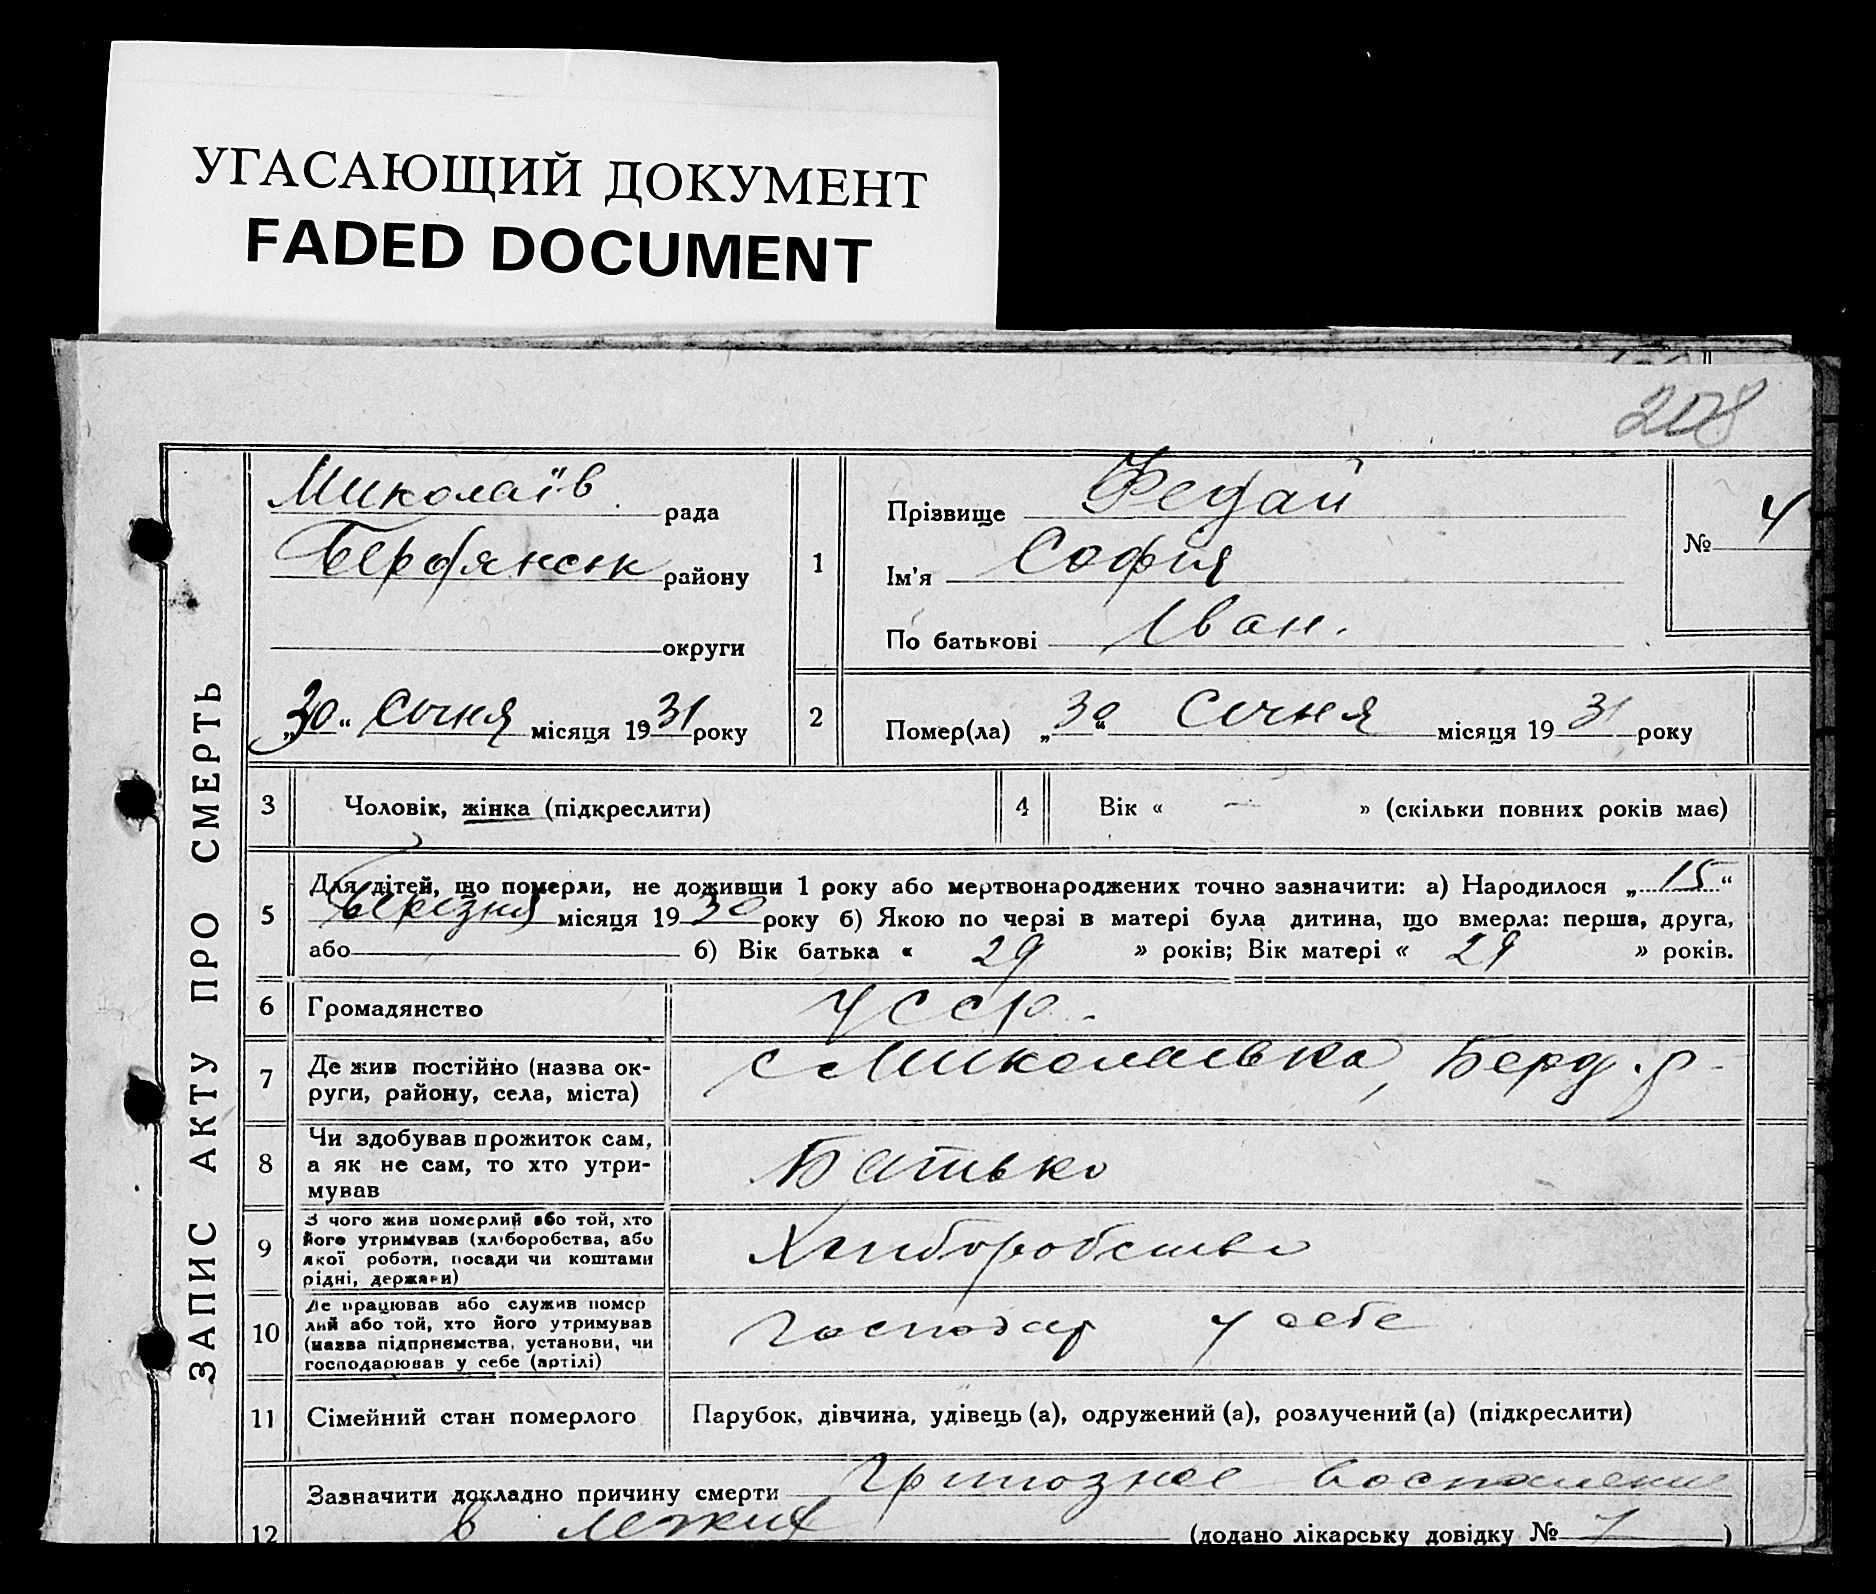 УГАСАЮЩИЙ ДОКУМЕНТ
FADED DOCUMENT
208
ЗАПИС АКТУ ПРО СМЕРТЬ
Миколаїв рада
Бердянськ району
округи
„30“ Січня місяця 1931 року
1
Прізвище Федай
Ім'я Софія
По батькові Іван.
№ 4
2
Помер(ла) „30“ Січня місяця 1931 року
3 Чоловік, жінка (підкреслити)
4 Вік « — » (скільки повних років має)
5 Для дітей, що померли, не доживши 1 року або мертвонароджених точно зазначити: а) Народилося „15“
Березня місяця 1930 року б) Якою по черзі в матері була дитина, що вмерла: перша, друга,
або б) Вік батька « 29 » років; Вік матері « 29 » років.
6 Громадянство УССР.
7 Де жив постійно (назва ок-
руги, району, села, міста)
с Миколаівка, Берд. р-
8 Чи здобував прожиток сам,
а як не сам, то хто утри-
мував
Батько
9 З чого жив померлий або той, хто
його утримував (хліборобства, або
якої роботи, посади чи коштами
рідні, держави)
Хліборобство
10 Де працював або служив помер
лий або той, хто його утримував
(назва підприємства, установи, чи
господарював у себе (артілі)
Господар у себе
11 Сімейний стан померлого Парубок, дівчина, удівець (а), одружений (а), розлучений (а) (підкреслити)
12 Зазначити докладно причину смерти воспаление
в легких (додано лікарську довідку № )